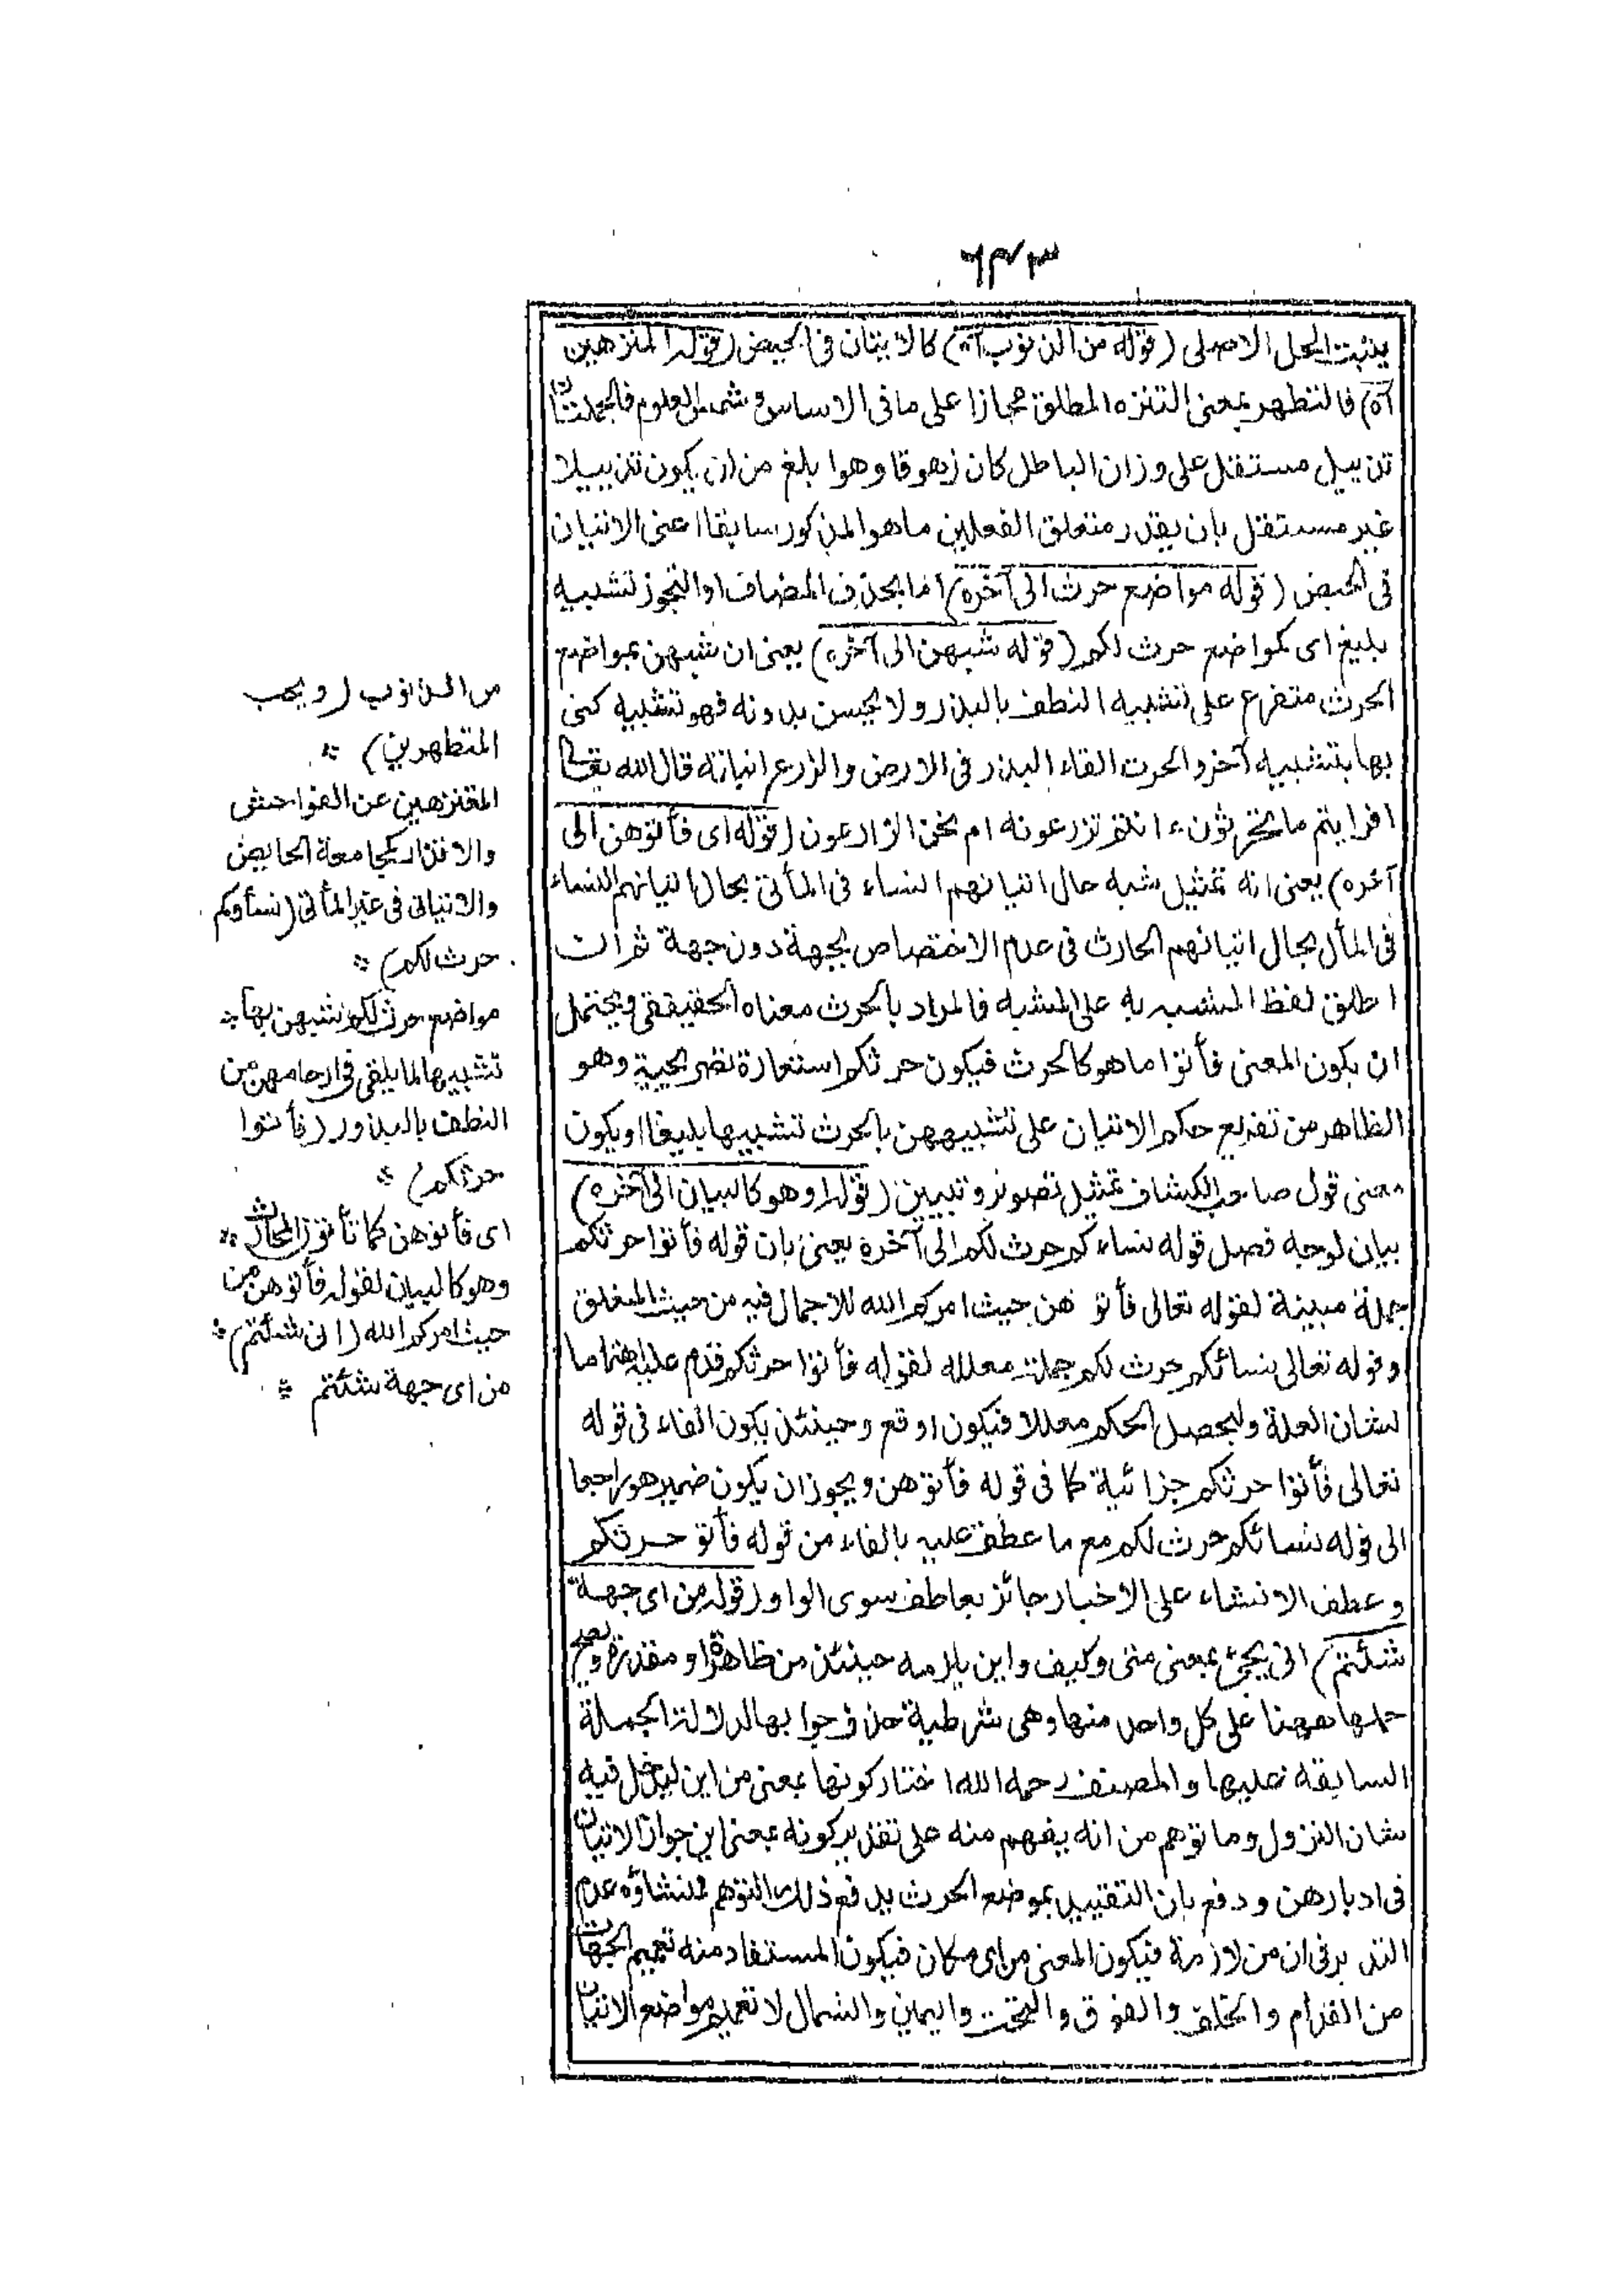 ٦٧٣
يثبت الحل الاصلى (قوله من الذنوب آه) كالاتيان فى الحيض (قوله المتنزهين
آه) فالتطهر بمعنى التنزه المطلق مجازا على ما فى الاساس وشمس العلوم فالجملتان
تذييل مستقل على وزان الباطل كان زهوقا وهوا بلغ من ان يكون تذييلا
غير مستقل بان يقدر متعلق الفعلين ما هو المذكور سابقا اعنى الاتيان
فى الحيض (قوله مواضع حرث الى آخره) اما بحذف المضاف او التجوز تشبيه
بليغ اى كمواضع حرث لكم (قوله شبههن الى آخره) يعنى ان شبههن بمواضع
الحرث متفرع على تشبيه النطف بالبذر ولا يحسن بدونه فهو تشبيه كنى
بها بتشبيه آخر والحرث القاء البذر فى الارض والزرع انباته قال الله تعالى
افرايتم ما تحرثون ءانتم تزرعونه ام نحن الزارعون (قوله اى فأتوهن الى
آخره) يعنى انه تمثيل شبه حال اتيانهم النساء فى المأتى بحال اتيانهم النساء
فى المأل بحال اتيانهم المحارث فى عدم الاختصاص بجهة دون جهة ثم ات
اطلق لفظ المشبه به على المشبه فالمراد بالحرث معناه الحقيقى ويحتمل
ان يكون المعنى فأتوا ما هو كالحرث فيكون حرثكم استعارة تصريحية وهو
الظاهر من تفريع حكم الاتيان على تشبيههن بالحرث تشبيها بليغا او يكون
معنى قول صاحب الكشاف تمثيل تصوير وتبيين (قوله وهو كالبيان الى آخره)
بيان لوجه فصل قوله نساءكم حرث لكم الى آخره يعنى بان قوله فأتوا حرثكم
جملة مبينة لقوله تعالى فأتو هن حيث امركم الله للاجمال فيه من حيث المتعلق
وقوله تعالى نسائكم حرث لكم جملة معللة لقوله فأتوا حرثكم قدم عليه اهتماما
لشان العلة وليحصل الحكم معللا فيكون اوقع وحينئذ يكون الفاء فى قوله
تعالى فأتوا حرثكم جزائية كما فى قوله فأتوهن ويجوز ان يكون ضمير هو راجعا
الى قوله نسائكم حرث لكم مع ما عطف عليه بالفاء من قوله فأتو حرثكم
وعطف الانشاء على الاخبار جائز بعاطف سوى الواو (قوله من اى جهة
شئتم) انى يجئ بمعنى متى وكيف واين يلزمه حينئذ من ظاهرة او مقدرة ويصح
حملها ههنا على كل واحد منها وهى شرطية حذف جوابها لدلالة الجملة
السابقة عليها والمصنف رحمه الله اختار كونها بمعنى من اين ليدخل فيه
شان النزول وما توهم من انه يفهم منه على تقدير كونه بمعنى اين جواز الاتيان
فى ادبارهن ودفع بان التقييد بموضع الحرث يدفع ذلك التوهم فمنشاؤه عدم
التدبر فى ان من لازمة فيكون المعنى من اى مكان فيكون المستفاد منه تعميم الجهات
من القدام والخلف والفوق والتحت واليمين والشمال لا تعميم مواضع الاتيان
من الذنوب (ويحب
المتطهرين)
المتنزهين عن الفواحش
والاقذار كمجامعة الحايض
والاتيان فى غير المأتى (نسأوكم
حرث لكم)
مواضع حرث لكم شبههن بها
تشبيها لما يلقى فى ارحامهن من
النطف بالبذور (فأتوا
حرثكم)
اى فأتوهن كما تأتون المحارث
وهو كالبيان لقوله فأتوهن من
حيث امركم الله (انى شئتم)
من اى جهة شئتم